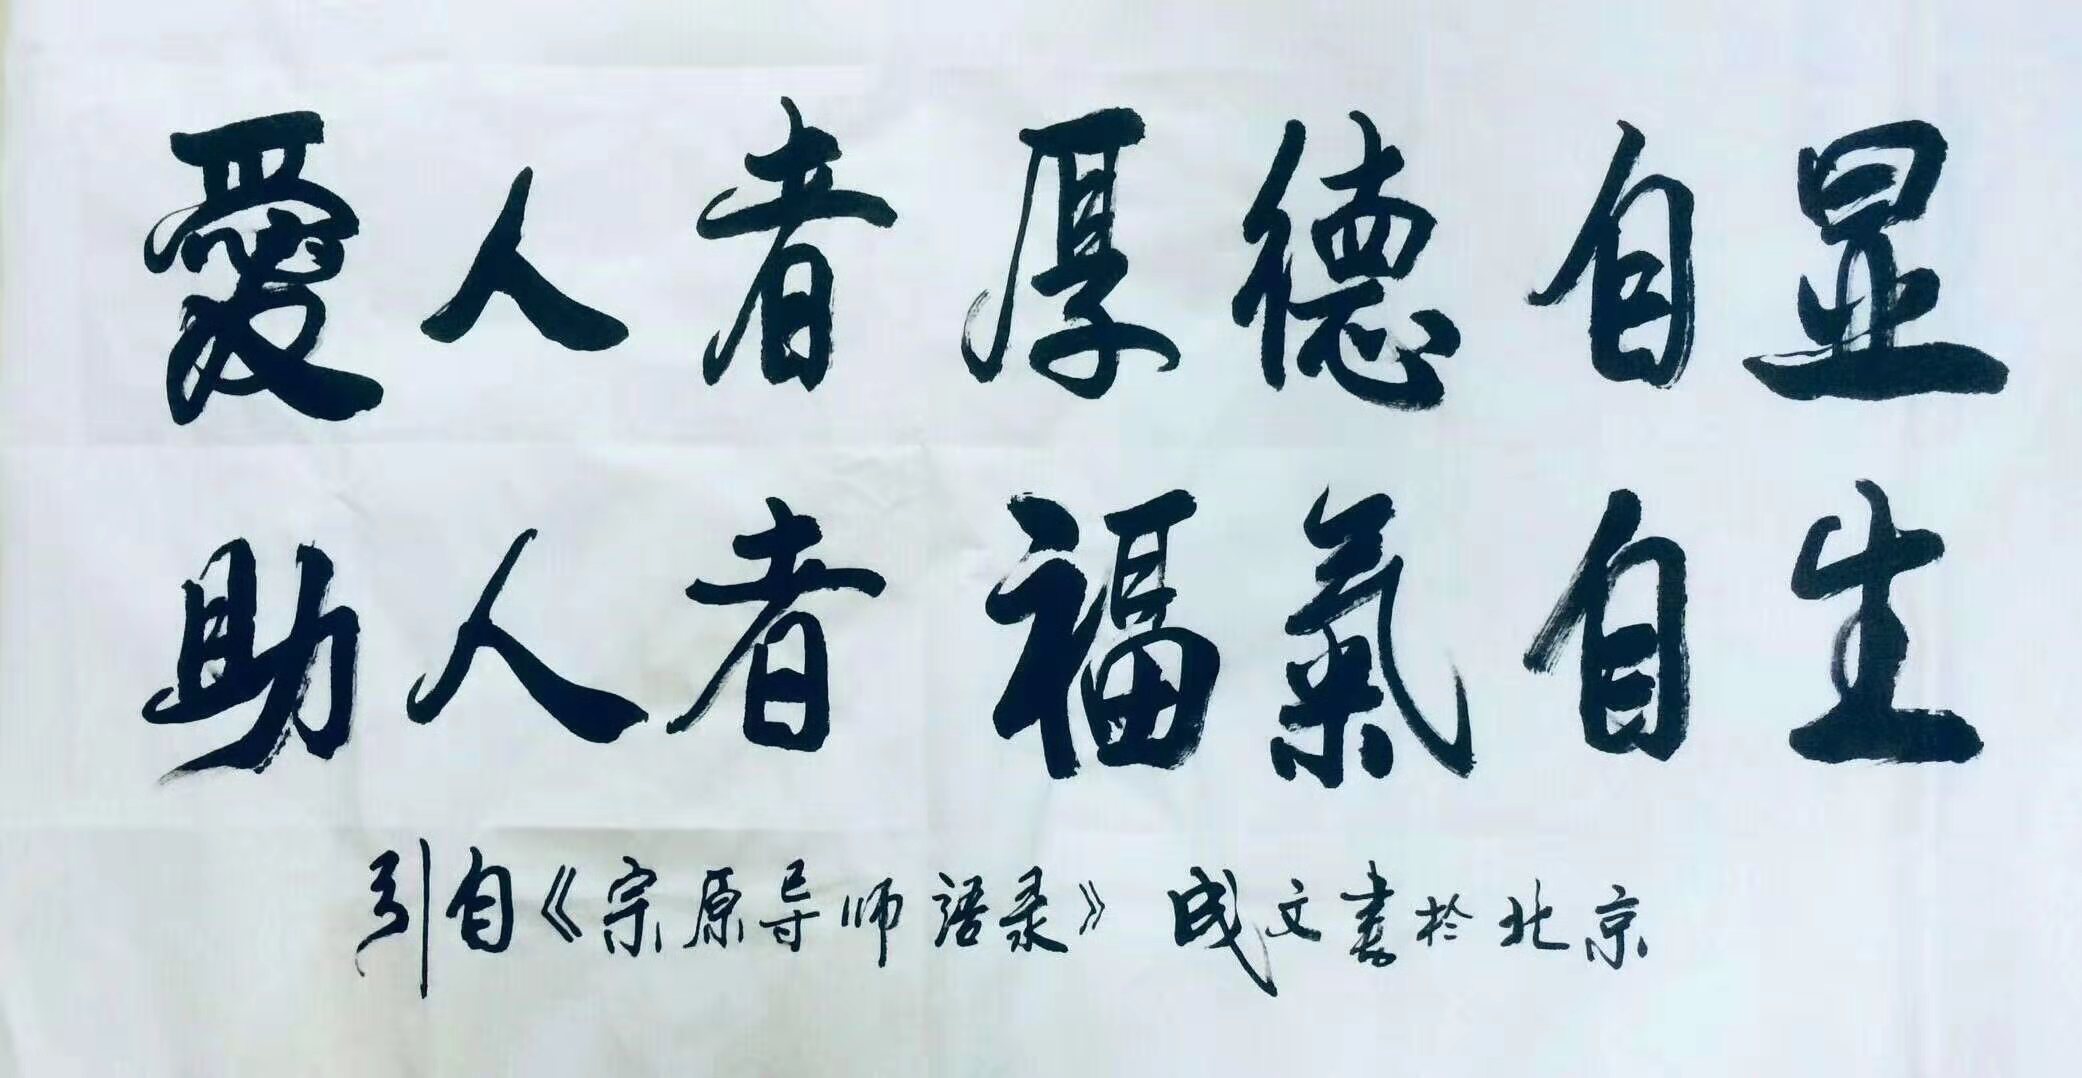 愛人者厚德自显
助人者福氣自生
引自《宗原导师语录》成文書於北京